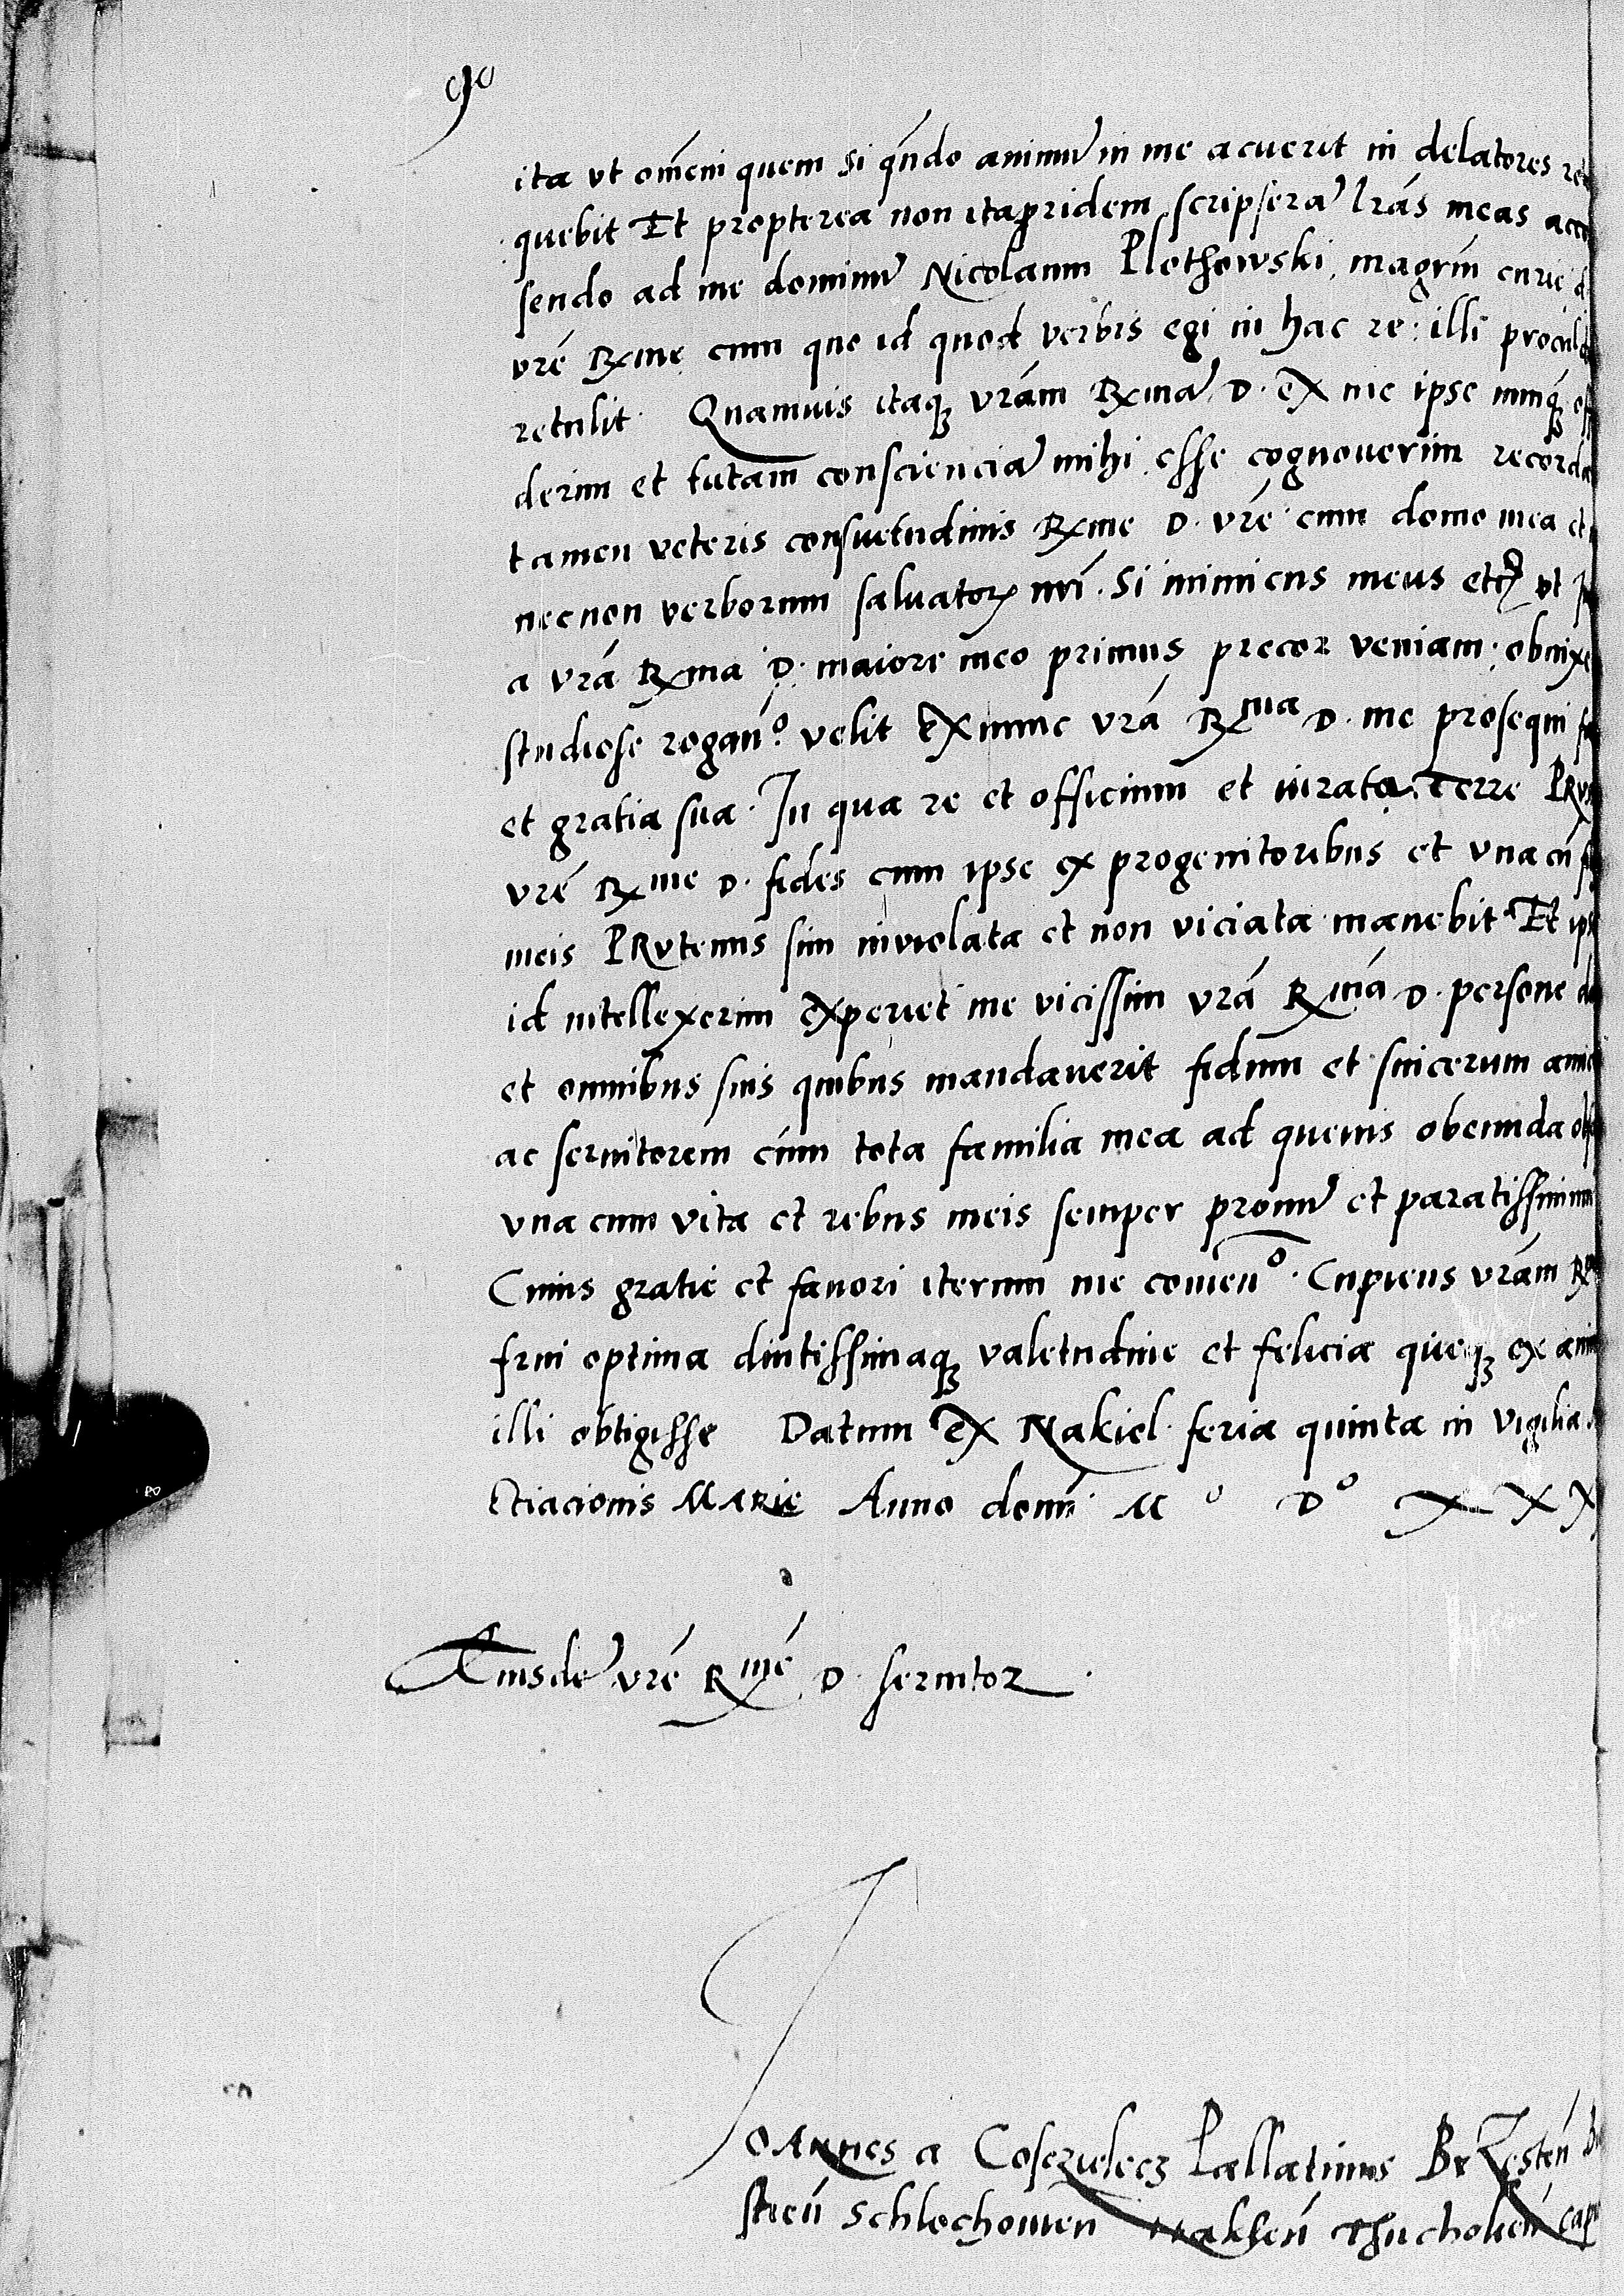 90
ita vt om̄em quem si q̄ndo animū in me acuerit in delatores
quebit Et propterea non ita pridem scripserā lrās meas
sendo ad me dominū Nicolaum Plothowski magrm̄ curie
vrē Rxme cum quo id quod verbis egi in hac re illi
retulit. Quamuis itaqꝫ vrām Rxmā D. ex me ipse nunqꝫ
derim et tutam consciencia᷉ mihi esse cognouerim
tamen veteris consuetudinis Rxme D. vrē cum domo mea et
necnon verborum saluatorꝫ nrī. Si inimicus meus etcꝫ vt
a vrā Rxma D. maiore meo primus precor veniam. obnixe
studiose roganᵒ. velit ex nunc vrā Rxma D. me prosequi
et gratia sua. In qua re et officium et iurata Terre
vrē Rxme D. fides cum ipse ex progenitoribus et vna cū
meis PRutenus sim inuiolata et non viciata manebit. Et
id intellexerim experiet me vicissim vrā Rxmā D. persone
et omnibus suis quibus mandauerit fidum et sincerum
ac seruitorem cum tota familia mea ad queuis obeunda
vna cum vita et rebus meis semper pronū et paratissimum
Cuius gratie et fauori iterum me comenᵒ. Cupiens vrām
frui optima diutissimaqꝫ valetudine et felicia queqꝫ ex
illi obtigisse Datum ex Nakiel feria quinta in vigilia
ctiacionis MARie Anno domi Mᵒ Dᵒ X X X
Eiusdē vrē Rxmē D. seruitor
IOAnnes a Cosczielecz Pallatinus BrZesten̄
sticen̄ Schlochouien Naklen̄ Thucholien̄